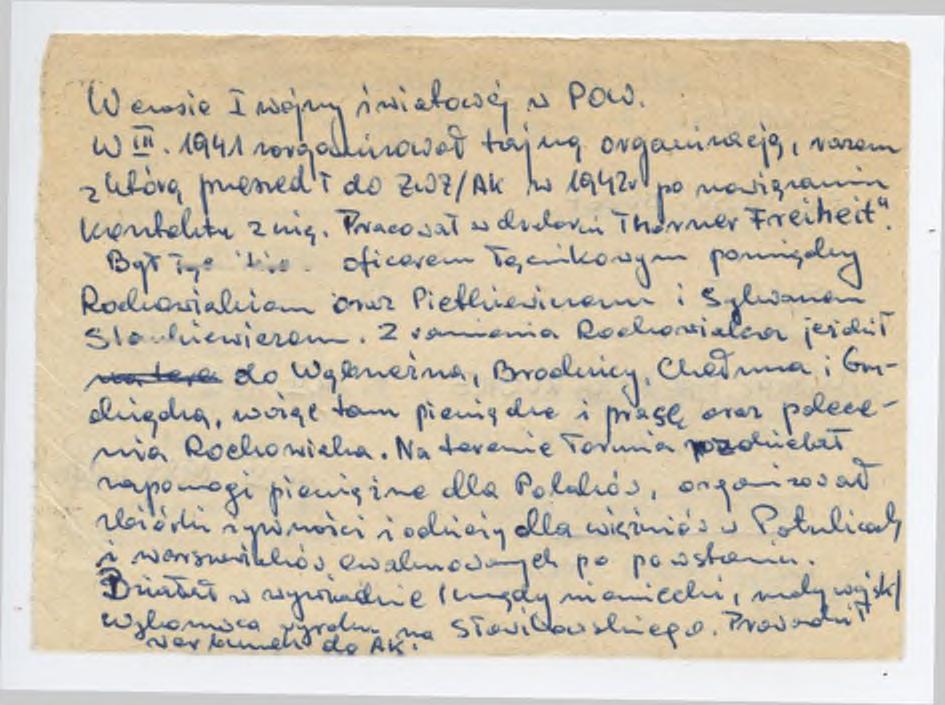 W czasie I wojny światowej w POW.
W III. 1941 zorganizował tajną organizację, razem
z którą przeszedł do ZWZ/AK w 1942r po nawiązaniu
kontaktu z nią. Pracował w drukarni Thorner Freiheit".
Był oficerem łącznikowym pomiędzy
Rochowiakiem oraz Pietkiewiczem i Sylwanem
Stankiewiczem. Z ramienia Rochowiaka jeździł
do Wąbrzeźna, Brodnicy, Chełmna i Gru-
dziądza, wożąc tam pieniądze i prasę oraz polece-
nia Rochowiaka. Na terenie Torunia rozdzielał
zapomogi pieniężne dla Polaków, organizował
zbiórki żywności i odzieży dla więźniów w Potulicach
i warszawiaków ewakuowanych po powstaniu.
Działał w wywiadzie (urzędy niemieckie, ruchy wojsk)
wykonawca wyroku na Słowikowskiego. Prowadził
werbunek do AK.